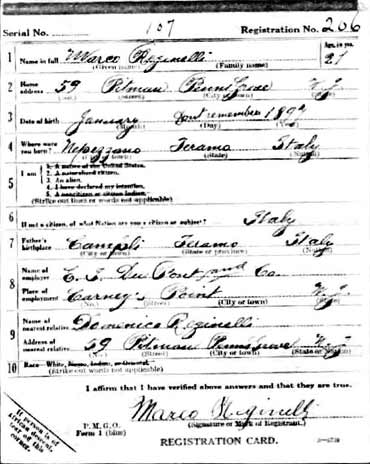 Serial No. 107 Registration No. 206
1 Name in full Marco Reginelli Age, in yrs.
(Given name) (Family name) 21
2 Home address 59 Pitman Penns Grove N.J.
(No.) (Street) (City or town) (State)
3 Date of birth January Don't remember 1897
(Month) (Day) (Year)
4 Where were you born? Nepezzano Teramo Italy
(City or town) (State) (Nation)
5 I am
1. A native of the United States.
2. A naturalized citizen.
3. An alien.
4. I have declared my intention.
5. A noncitizen or citizen Indian.
(Strike out lines or words not applicable)
6 If not a citizen, of what Nation are you a citizen or subject? Italy
7 Father's birthplace Campli Teramo Italy
(City or town) (State or province) (Nation)
8 Name of employer E. I. Du Pont and Co.
Place of employment Carney's Point N.J.
(No.) (Street) (City or town) (State)
9 Name of nearest relative Domenico Reginelli
Address of nearest relative 59 Pitman Penns Grove N.J.
(No.) (Street) (City or town) (State or Nation)
10 Race—White, Negro, Indian, or Oriental.
(Strike out words not applicable)
I affirm that I have verified above answers and that they are true.
Marco Reginelli
(Signature or Mark of Registrant.)
P. M. G. O.
Form 1 (blue)
REGISTRATION CARD.
If person is of
African descent,
tear off this
corner.